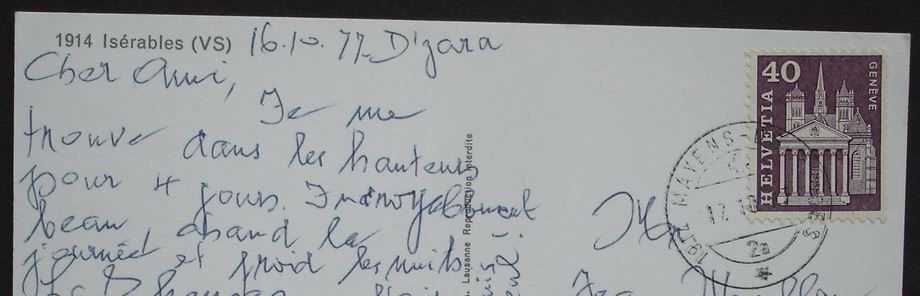 1914 Isérables (VS) 16.10.77
Cher Ami,
Je me
trouve dans les hauteurs
pour 4 jours. Incroyablement
beau, chaud la
journée et froid les nuits
Lausanne Reproduction interdite
40
GENÈVE
HELVETIA
1912 MAYENS
17.10